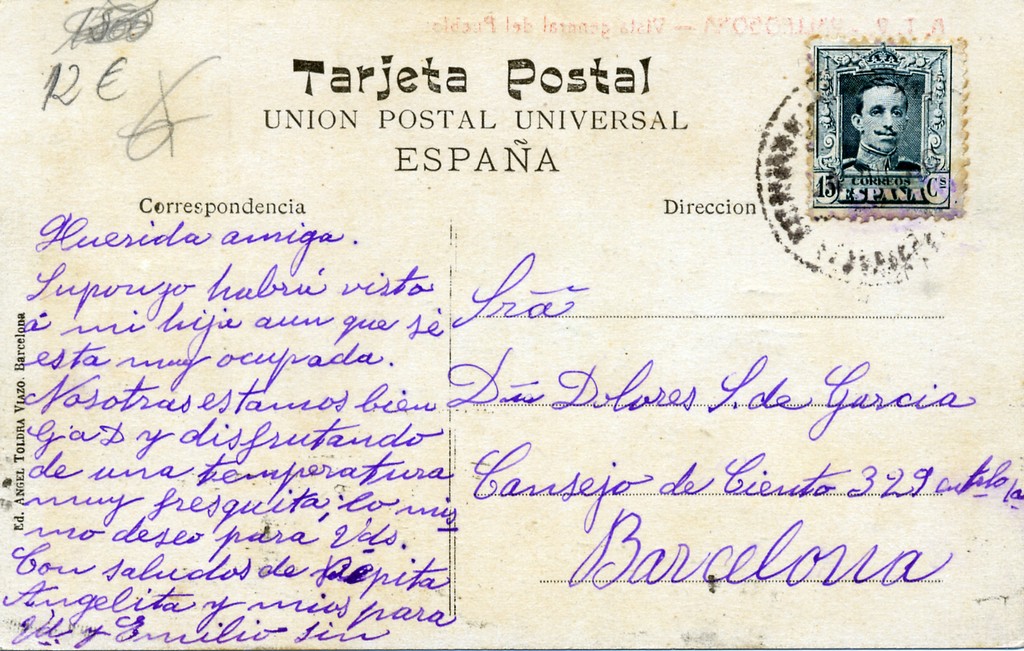 12 €
Tarjeta Postal
UNION POSTAL UNIVERSAL
ESPAÑA
15 CORREOS Cs
ESPAÑA
Correspondencia
Direccion
Querida amiga.
Supongo habrá visto
á mi hija aun que sé
esta muy ocupada.
Nosotras estamos bien
G a D y disfrutando
de una temperatura
muy fresquita, lo mis
mo deseo para Vds.
Con saludos de Pepita
Angelita y mios para
Vd. y Emilio sin
Sra
Dña Dolores S. de Garcia
Consejo de Ciento 329
Barcelona
Ed. ANGEL TOLDRA VIAZO. Barcelona
Vista general del Pueblo